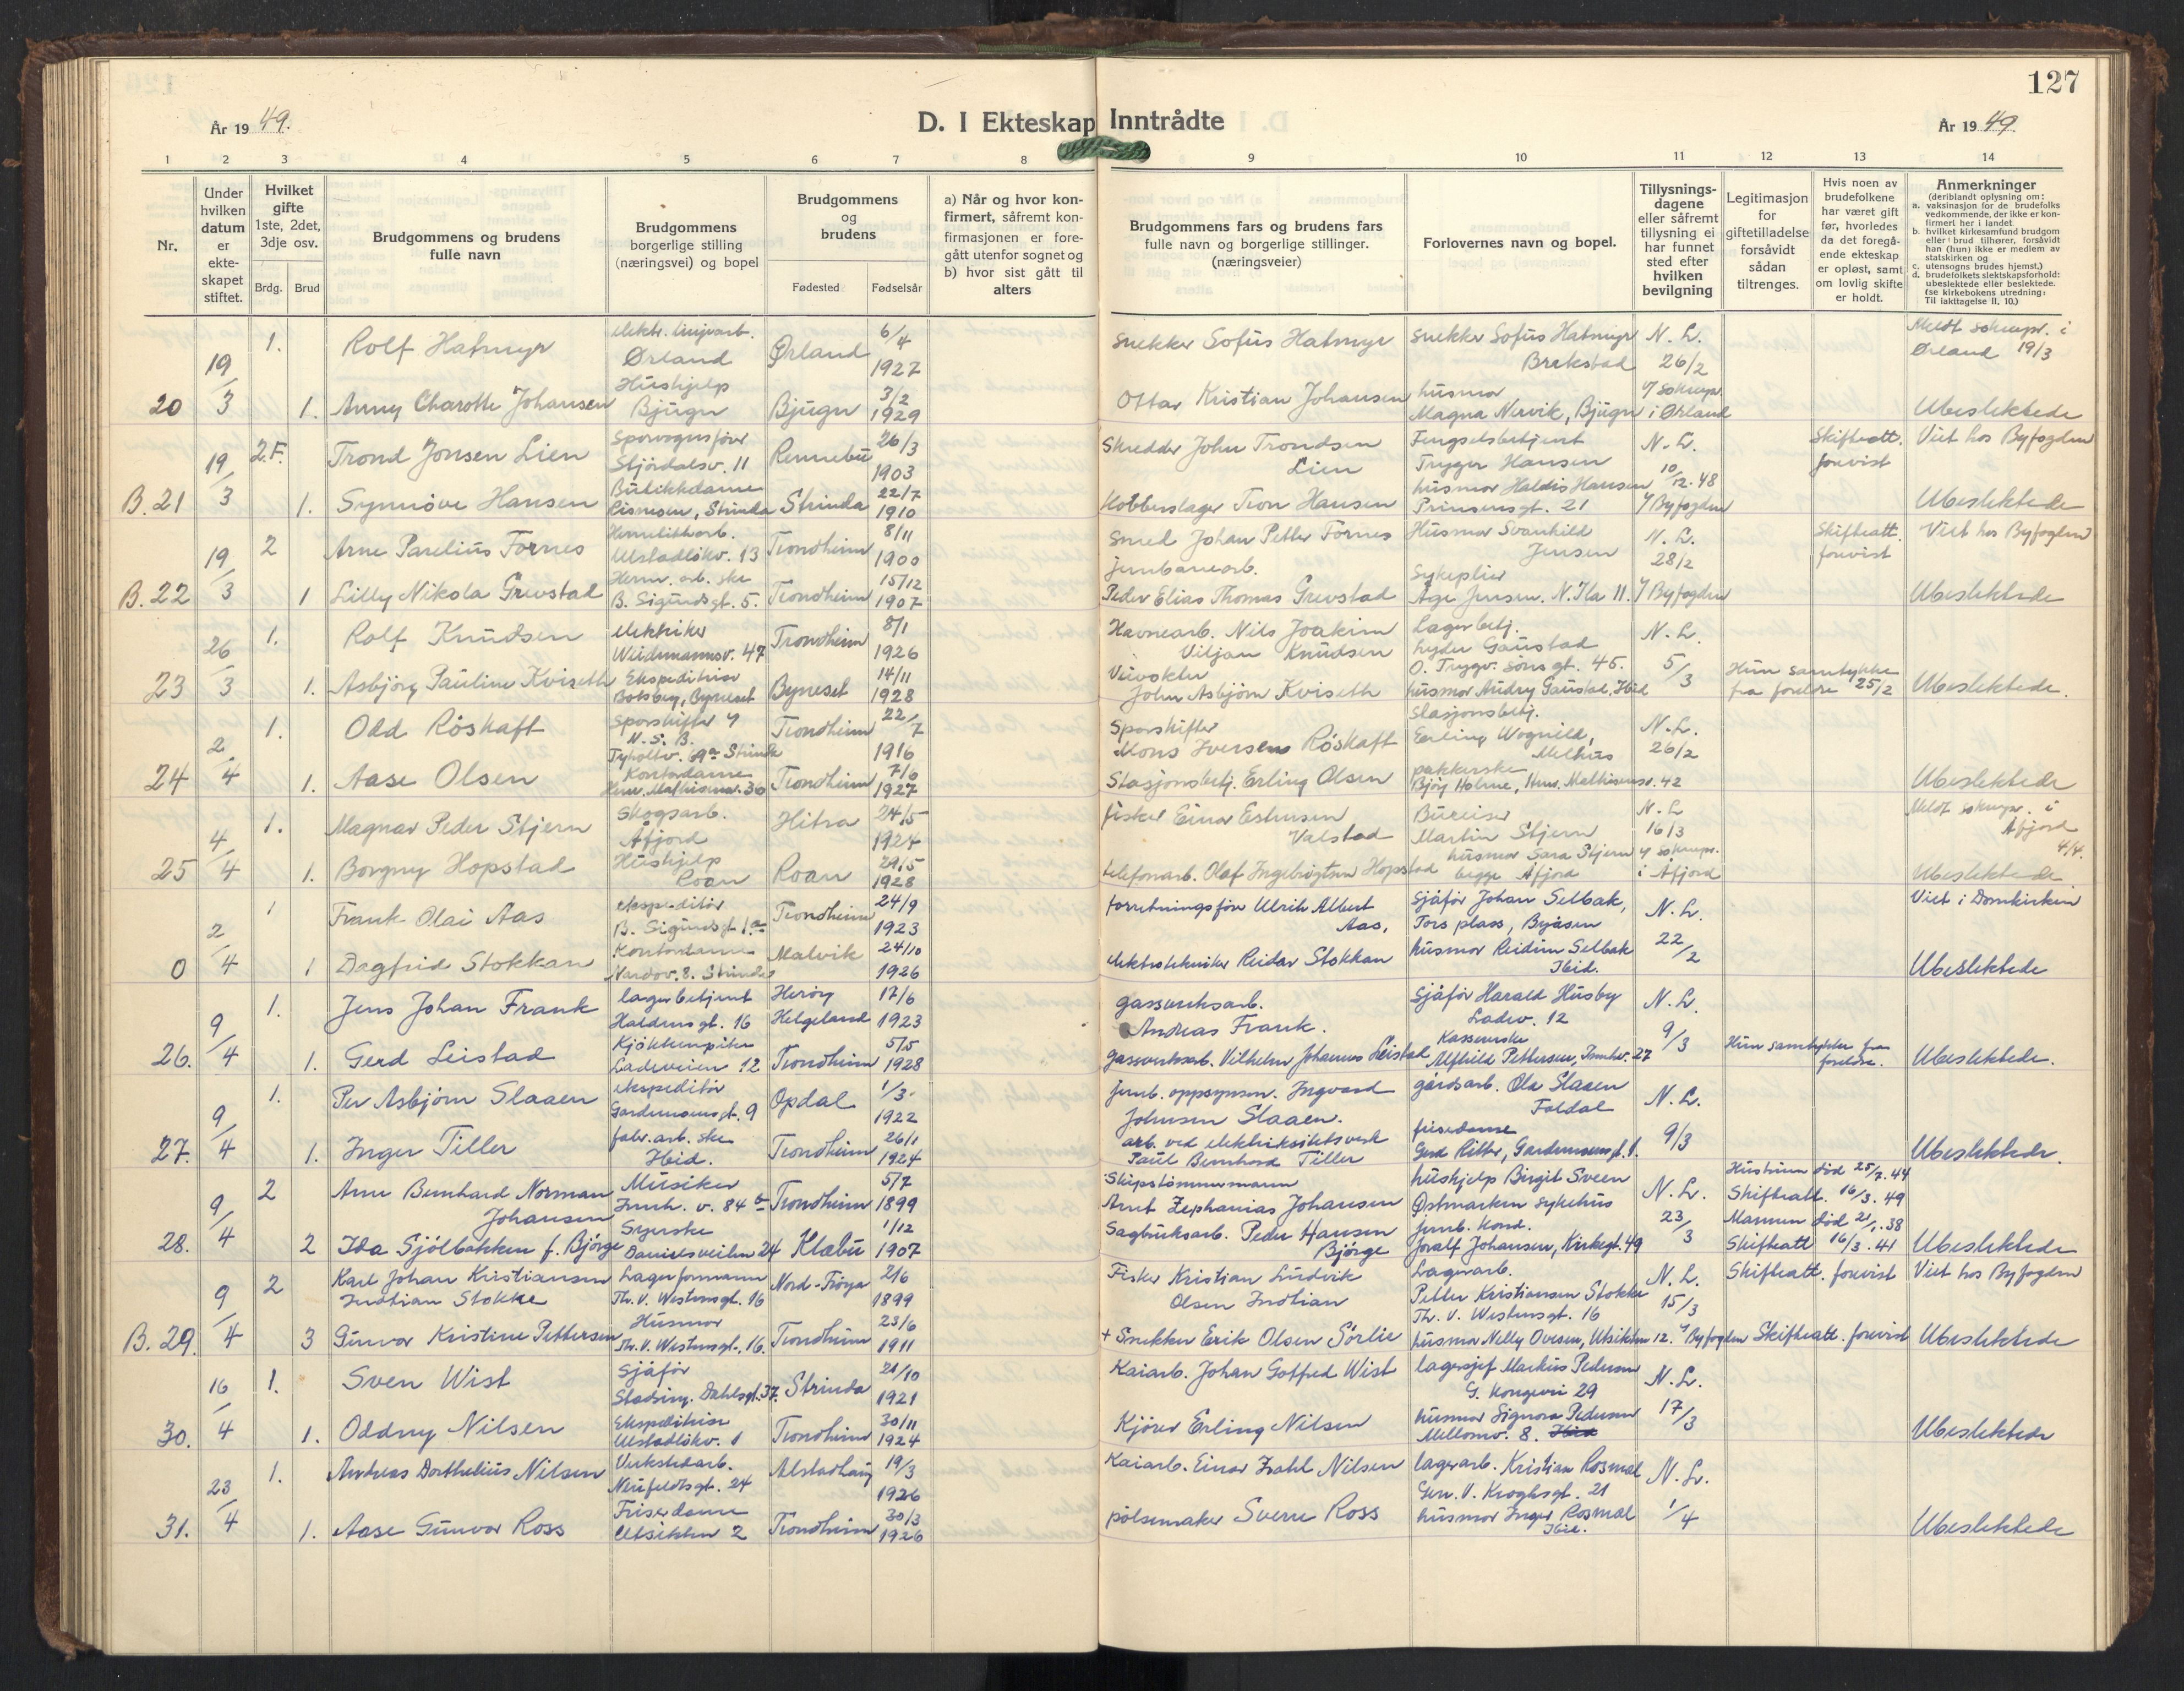 127
År 19 49.
D. I Ekteskap Inntrådte
År 19 49.
1 2 3 4 5 6 7 8 9 10 11 12 13 14
Nr.
Under hvilken datum er ekte- skapet stiftet.
Hvilket gifte 1ste, 2det, 3dje osv.
Brdg. Brud
Brudgommens og brudens fulle navn
Brudgommens borgerlige stilling (næringsvei) og bopel
Brudgommens og brudens
Fødested Fødselsår
a) Når og hvor kon- firmert, såfremt kon- firmasjonen er fore- gått utenfor sognet og b) hvor sist gått til alters
Brudgommens fars og brudens fars fulle navn og borgerlige stillinger. (næringsveier)
Forlovernes navn og bopel.
Tillysnings- dagene eller såfremt tillysning ei har funnet sted efter hvilken bevilgning
Legitimasjon for giftetilladelse forsåvidt sådan tiltrenges.
Hvis noen av brudefolkene har været gift før, hvorledes da det foregå- ende ekteskap er opløst, samt om lovlig skifte er holdt.
Anmerkninger
(deriblandt oplysning om:
a. vaksinasjon for de brudefolks vedkommende, der ikke er kon- firmert her i landet.
b. hvilket kirkesamfund brudgom eller brud tilhører, forsåvidt han (hun) ikke er medlem av statskirken og
c. utensogns brudes hjemst.)
d. brudefolkets slektskapsforhold: ubeslektede eller beslektede. (se kirkebokens utredning: Til iakttagelse II. 10.)
19/3 1. Rolf Hatmyr Ørland Ørland 6/4 1927 snekker Sofus Hatmyr snekker Sofus Hatmyr Brekstad N. L. 26/2 Meldt soknepr. i Ørland 19/3
20 1. Anny Charotte Johansen Hushjelp Bjugn Bjugn 3/2 1929 Ottar Kristian Johansen husmor Magna Nervik, Bjugn i Ørland Ubeslektede
19/3 2.F. Trond Jonsen Lien Sporvognsfører Stjördalsv. 11 Rennebu 26/3 1903 Skredder John Trondsen Lien Fengselsbetjent Trygve Hansen N. L. 10/12.48 Skifteatt. forevist Viet hos Byfogden
B. 21 1. Synnöve Hansen Butikkdame Strinda Strinda 22/7 1910 Kobberslager Hansen husmor Haldis Hansen Prinsensgt. 21 Byfogden Ubeslektede
19/3 2 Arne Parelius Fornes Ulstadlökv. 13 Trondheim 8/11 1900 Smed Johan Petter Fornes Husmor Svanhild Jensen N. L. 28/2 Skifteatt. forevist Viet hos Byfogden
B. 22 1 Lilly Nikola Grevstad B. Sigurdsgt. 5. Trondheim 15/12 1907 jernbanearb. Peder Elias Thomas Grevstad Sykepleier Åge Jensen. N. Ila 11. Byfogden Ubeslektede
26/3 1. Rolf Knudsen elektriker Weidemannsv. 47 Trondheim 8/1 1926 Havnearb. Nils Joakim Viljan Knudsen Lagerbetj. Gaustad O. Trygv. sönsgt. 45. N. L. 5/3
23 1. Asbjörg Pauline Kviseth Ekspeditrise Byneset Byneset 14/11 1928 John Asbjörn Kviseth husmor Audry Gaustad, Ibid Hun samtykke fra foreldre 25/2 Ubeslektede.
2/4 1. Odd Röskaft Sporskifter N. S. B. Tyholtv. Strinda Trondheim 22/7 1916 Sporskifter Mons Iversen Röskaft Stasjonsbetj. Erling Wognild, Melhus N. L. 26/2
24 1. Aase Olsen Kontordame 30 Trondheim 7/6 1927 Stasjonsbetj. Erling Olsen pakkerske Björg Holme, 42 Ubeslektede
4/4 1. Magnar Peder Stjern Skogsarb. Åfjord Hitra 24/5 1924 fisker Einar Valstad Büreiser Martin Stjern N. L 16/3 Meldt soknepr. i Åfjord 4/4.
25 1. Borgny Hopstad Hushjelp Roan Roan 29/5 1928 telefonarb. Olaf Ingebrigtsen Hopstad husmor Sara Stjern begge Åfjord i Åfjord Ubeslektede
2/4 1 Frank Olai Aas ekspeditör B. Sigurdsgt 1.a Trondheim 24/9 1923 forretningsförer Ulrik Albert Aas, Sjåför Johan Selbak, Tors plass, Byåsen N. L. 22/2 Viet i Domkirken
0 1 Dagfrid Stokkan Kontordame Nardov. 8. Strinda Malvik 24/10 1926 elektrotekniker Reidar Stokkan husmor Reidun Selbak Ibid. Ubeslektede
9/4 1. Jens Johan Frank lagerbetjent Haldensgt. 16 Heröy Helgeland 17/6 1923 gassverksarb. Andreas Frank. Sjåför Harald Husby Ladev. 12 N. L. 9/3
26. 1. Gerd Leistad Ladeveien 12 Trondheim 5/5 1928 gassverksarb. Vilhelm Johannes Leistad Alfhild Pettersen, 27 Hun samtykke fra foreldre. Ubeslektede.
9/4 1. Per Asbjörn Slaaen ekspeditör Gardemoensgt. 9 Opdal 1/3 1922 jernb. oppsynsm. Ingvard Johnsen Slaaen. gårdsarb. Ola Slaaen Foldal N. L. 9/3
27. 1. Inger Tiller fabr. arb. ske Ibid. Trondheim 26/1 1924 arb. ved elektrisitetsverk Paul Bernhard Tiller frisedame Gerd Ritter, Gardemoensgt. 1. Ubeslektede.
9/4 2 Arne Bernhard Norman Johansen Musiker Innh. v. 84 b Trondheim 5/7 1899 Skipstömmermann Arnt Zephanias Johansen hushjelp Birgit Sveen Östmarken sykehus N. L. 23/3 Hustruen död 25/7.44 Skifteatt. 16/3.49
28. 2 Ida Sjölbakken f. Björge Syerske 24 Klæbu 1/12 1907 Sagbruksarb. Peder Hansen Björge jernb. kond. Joralf Johansen, Kirkegt. 49 Mannen död 21/1.38 Skifteatt 16/3.41 Ubeslektede
9/4 2 Karl Johan Kristiansen Indtian Stokke Lagerformann Th. V. Westensgt. 16 Nord-Fröya 2/6 1899 Fisker Kristian Ludvik Olsen Indtian Lagerarb. Petter Kristiansen Stokke Th. V. Westensgt. 16 N. L. 15/3 Skifteatt. forevist Viet hos Byfogden
B. 29. 3 Gunvor Kristine Pettersen Husmor Th. V. Westensgt. 16. Trondheim 23/6 1911 + Snekker Erik Olsen Sörlie husmor Nelly Ovesen, Utsikten 12. Byfogden Skifteatt. forevist Ubeslektede
16/4 1. Sven Wist Sjåför Stadsing. Dahlsgt. 37. Strinda 21/10 1921 Kaiarb. Johan Gotfred Wist lagersjef Markus Pedersen G. Kongevei 29 N. L. 17/3
30. 1. Oddny Nilsen Ekspeditrise Ulstadlökv. 1 Trondheim 30/11 1924 Kjörer Erling Nilsen husmor Signora Pedersen Mellomv. 8. Ibid Ubeslektede
23/4 1. Andreas Dorthelius Nilsen Verkstedarb. Neufeldtsgt. 24 Alstadhaug 19/3 1926 Kaiarb. Einar Nilsen lagerarb. Kristian Rosmæl Gen. V. Kroghsgt. 21 N. L. 1/4
31. 1. Aase Gunvor Ross Friserdame Utsikten 2 Trondheim 30/3 1926 pölsemaker Sverre Ross husmor Inger Rosmæl Ibid. Ubeslektede